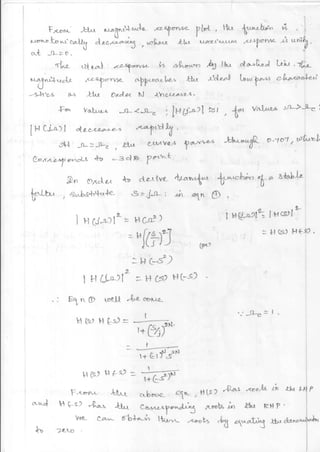 From the magnitude response plot, the function is
monotonically decreasing, where the maximum response is unity
at Ω=0.
The ideal response is shown by the dashed line. The
magnitude response approaches the ideal low pass character
-stics as the order N increases.
For values Ω<Ωc ; |H(jΩ)| ≅1, for values Ω>Ωc ;
|H(jΩ)| decreases rapidly.
At Ω=Ωc, the curves passes through 0.707, which
corresponds to -3dB point.
In order to derive transfer function of a stable
filter, substitute S=jΩ in eqn ①,
|H(jΩ)|² = H(Ω²)
|H(jΩ)|² = |H(s)|²
= H[(s/j)²]
= H(s) H(-s).
(or)
= H(-s²)
|H(jΩ)|² = H(s) H(-s).
∴ Eqn ① will become
H(s) H(-s) = 1 / 1+(s/j)^2N
∵ Ωc = 1.
= 1 / 1+(-1)^N s^2N
H(s) H(-s) = 1 / 1+(-s²)^N
From the above eqn, H(s) has roots in the LHP
and H(-s) has the corresponding roots in the RHP.
We can obtain them roots by equating the denominator
to zero.